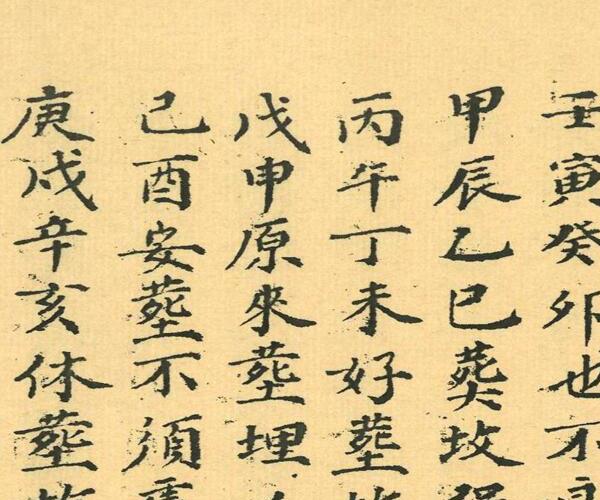 壬寅癸卯也不
甲辰乙巳葬坟
丙午丁未好塟
戊申原來塟埋
己酉安塟不須
庚戌辛亥休塟